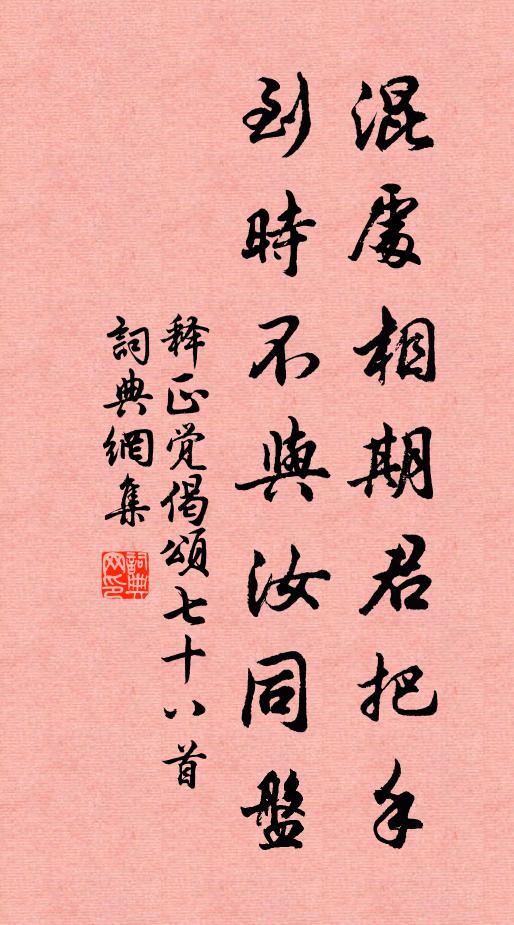 混處相期君把手
到時不與汝同盤
释正觉偈颂七十八首
詞典網集
詞典網印